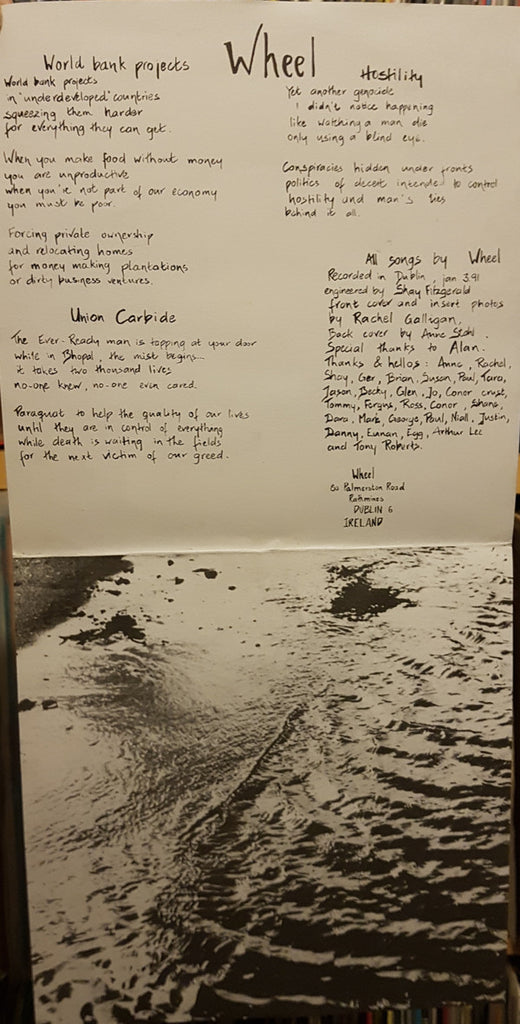 Wheel
World bank projects
World bank projects
in 'underdeveloped' countries
squeezing them harder
for everything they can get.
When you make food without money
you are unproductive
when you're not part of our economy
you must be poor.
Forcing private ownership
and relocating homes
for money making plantations
or dirty business ventures.
Union Carbide
The Ever-Ready man is tapping at your door
while in Bhopal, the mist begins...
it takes two thousand lives
no-one knew, no-one even cared.
Paraquat to help the quality of our lives
until they are in control of everything
while death is waiting in the fields
for the next victim of our greed.
Hostility
Yet another genocide
I didn't notice happening
like watching a man die
only using a blind eye.
Conspiracies hidden under fronts
politics of deceit intended to control
hostility and man's lies
behind it all.
All songs by Wheel
Recorded in Dublin, jan 3.91
engineered by Shay Fitzgerald
front cover and insert photos
by Rachel Galligan,
Back cover by Anne
Special thanks to Alan.
Thanks & hellos: Anne, Rachel,
Shay, Ger, Brian, Susan, Paul, Tara,
Jason, Becky, Glen, Jo, Conor crust,
Tommy, Fergus, Ross, Conor, Shane,
Dara, Mark, George, Paul, Niall, Justin,
Danny, Eunan, Egg, Arthur Lee
and Tony Roberts.
Wheel
Palmerston Road
Rathmines
DUBLIN 6
IRELAND